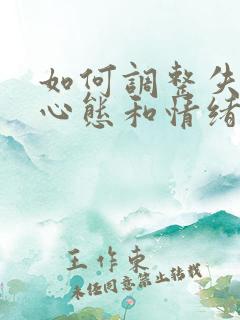 如何調整失
心態和情緒
王作東
未经同意禁止转载